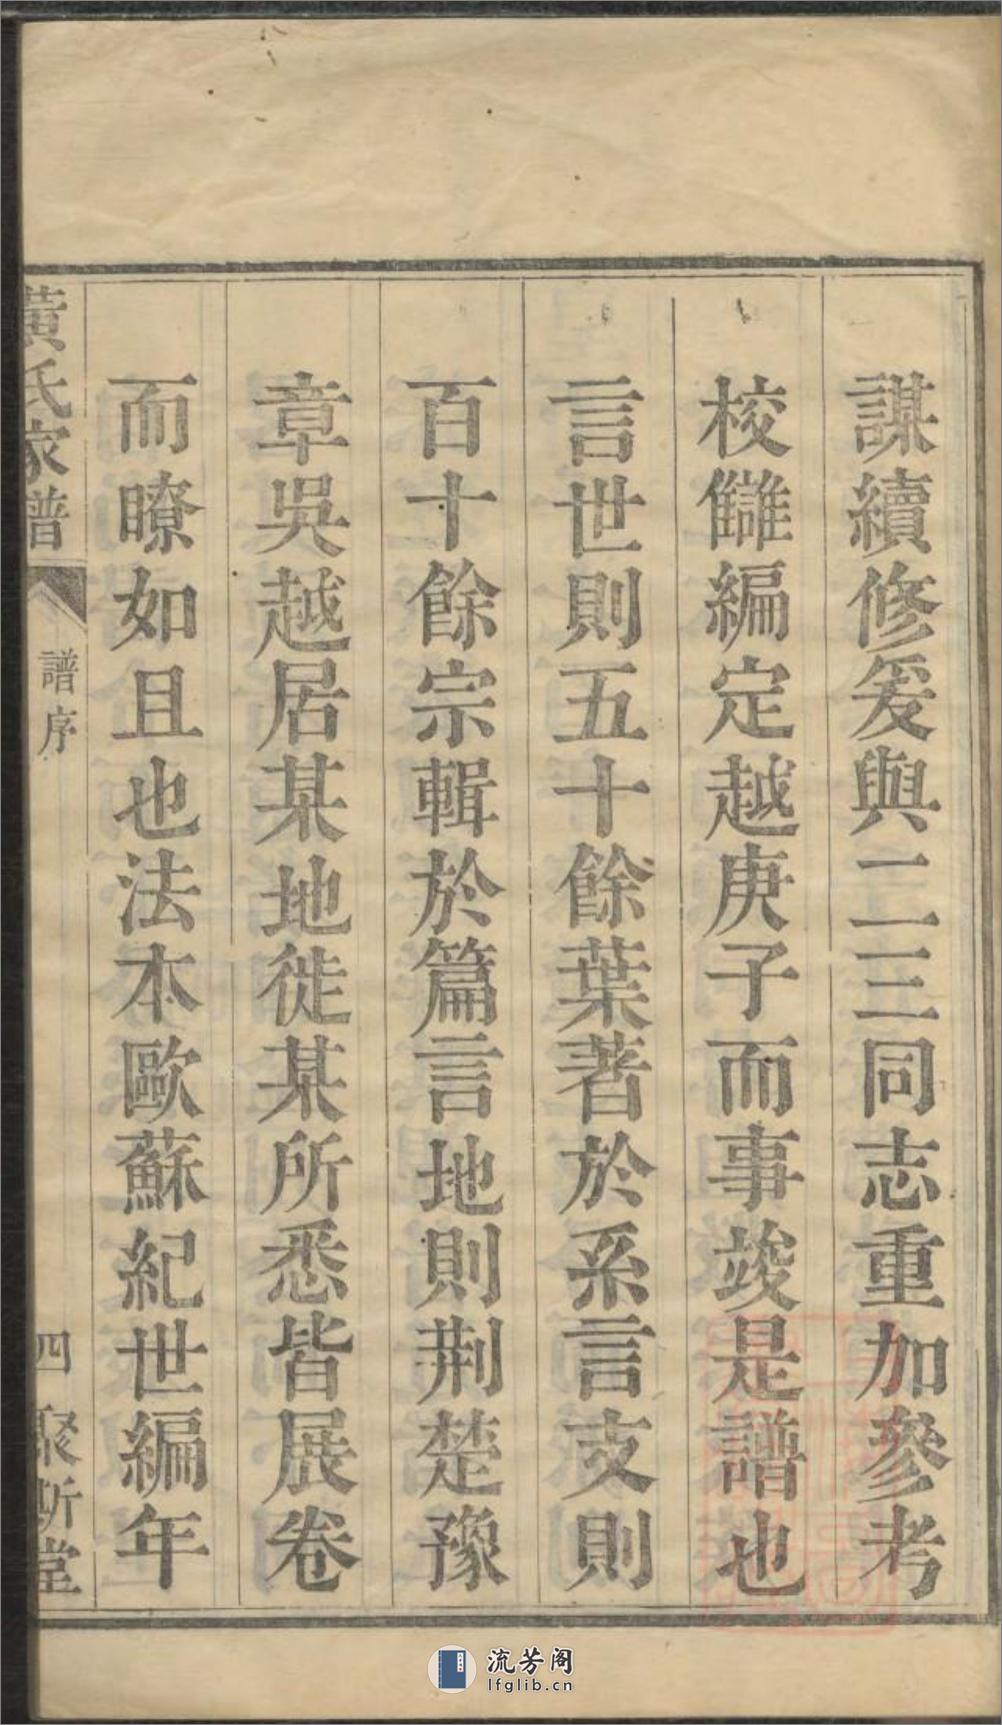 謀續修爰與二三同志重加參考
校讎編定越庚子而事竣是譜也
言世則五十餘葉著於系言支則
百十餘宗輯於篇言地則荆楚豫
章吳越居某地徙某所悉皆展卷
而瞭如且也法本歐蘇紀世編年
黃氏家譜
譜序
四
聚斯堂
流芳阁
lfglib.cn